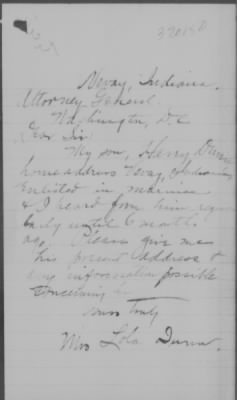 Vevay, Indiana.
Attorney General
Washington, D.C.
Dear Sir:
My son, Henry Dunn
home address Vevay, Indiana
Enlisted in marines
& I heard from him regu
larly until 6 months
ago. Please give me
his present address &
any information possible
concerning
Yours Truly
Mrs Lola Dunn.